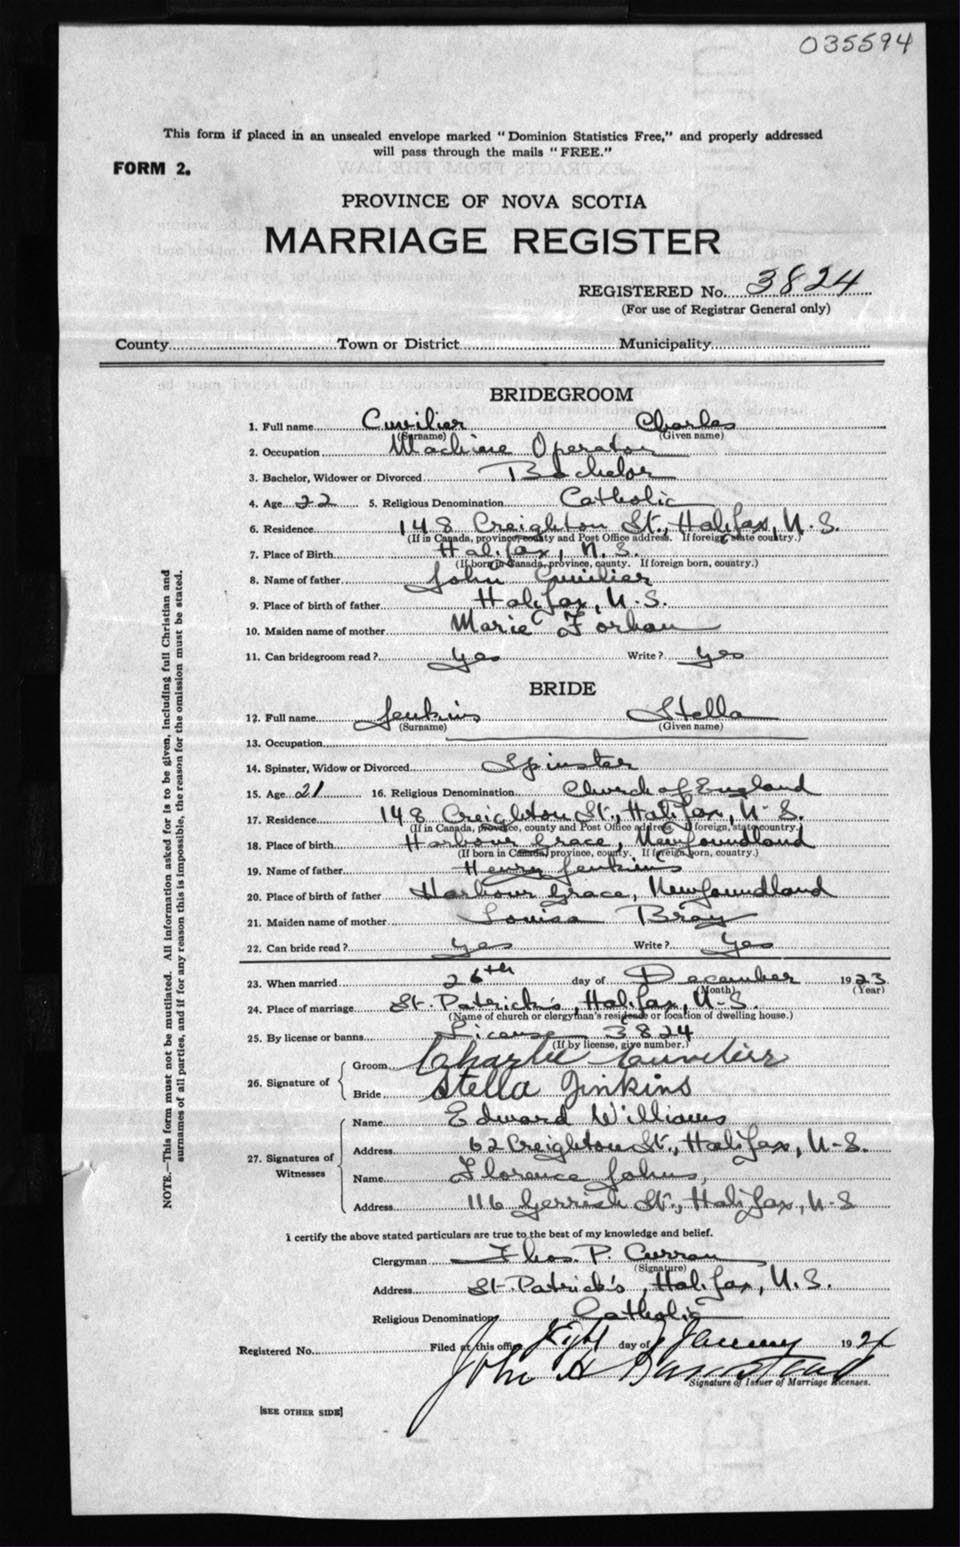 035594
This form if placed in an unsealed envelope marked "Dominion Statistics Free," and properly addressed
will pass through the mails "FREE."
FORM 2.
PROVINCE OF NOVA SCOTIA
MARRIAGE REGISTER
REGISTERED No. 3824
(For use of Registrar General only)
County Town or District Municipality
BRIDEGROOM
1. Full name Cuvilier Charles
(Surname) (Given name)
2. Occupation Machine Operator
3. Bachelor, Widower or Divorced Bachelor
4. Age 22 5. Religious Denomination Catholic
6. Residence 148 Creighton St., Halifax, N.S.
(If in Canada, province, county and Post Office address. If foreign, state country.)
7. Place of Birth Halifax, N.S.
(If born in Canada, province, county. If foreign born, country.)
8. Name of father John Cuvilier
9. Place of birth of father Halifax, N.S.
10. Maiden name of mother Marie Forhan
11. Can bridegroom read? yes Write? yes
BRIDE
12. Full name Jenkins Stella
(Surname) (Given name)
13. Occupation
14. Spinster, Widow or Divorced Spinster
15. Age 21 16. Religious Denomination Church of England
17. Residence 148 Creighton St., Halifax, N.S.
(If in Canada, province, county and Post Office address. If foreign, state country.)
18. Place of birth Harbour Grace, Newfoundland
(If born in Canada, province, county. If foreign born, country.)
19. Name of father Henry Jenkins
20. Place of birth of father Harbour Grace, Newfoundland
21. Maiden name of mother Louisa Bray
22. Can bride read? yes Write? yes
23. When married 26th day of December 1923
(Month) (Year)
24. Place of marriage St. Patrick's, Halifax, N.S.
(Name of church or clergyman's residence or location of dwelling house.)
25. By license or banns License 3824
(If by license, give number.)
26. Signature of
Groom Charlie Cuvelier
Bride Stella Jinkins
27. Signatures of Witnesses
Name Edward Williams
Address 62 Creighton St., Halifax, N.S.
Name Florence Johns,
Address 116 Gerrish St., Halifax, N.S
I certify the above stated particulars are true to the best of my knowledge and belief.
Clergyman Thos. P. Curran
(Signature)
Address St. Patrick's, Halifax, N.S.
Religious Denomination Catholic
Registered No. Filed at this office day of January 192
John H
Signature of Issuer of Marriage Licenses.
[SEE OTHER SIDE]
NOTE.—This form must not be mutilated. All information asked for is to be given, including full Christian and
surnames of all parties, and if for any reason this is impossible, the reason for the omission must be stated.